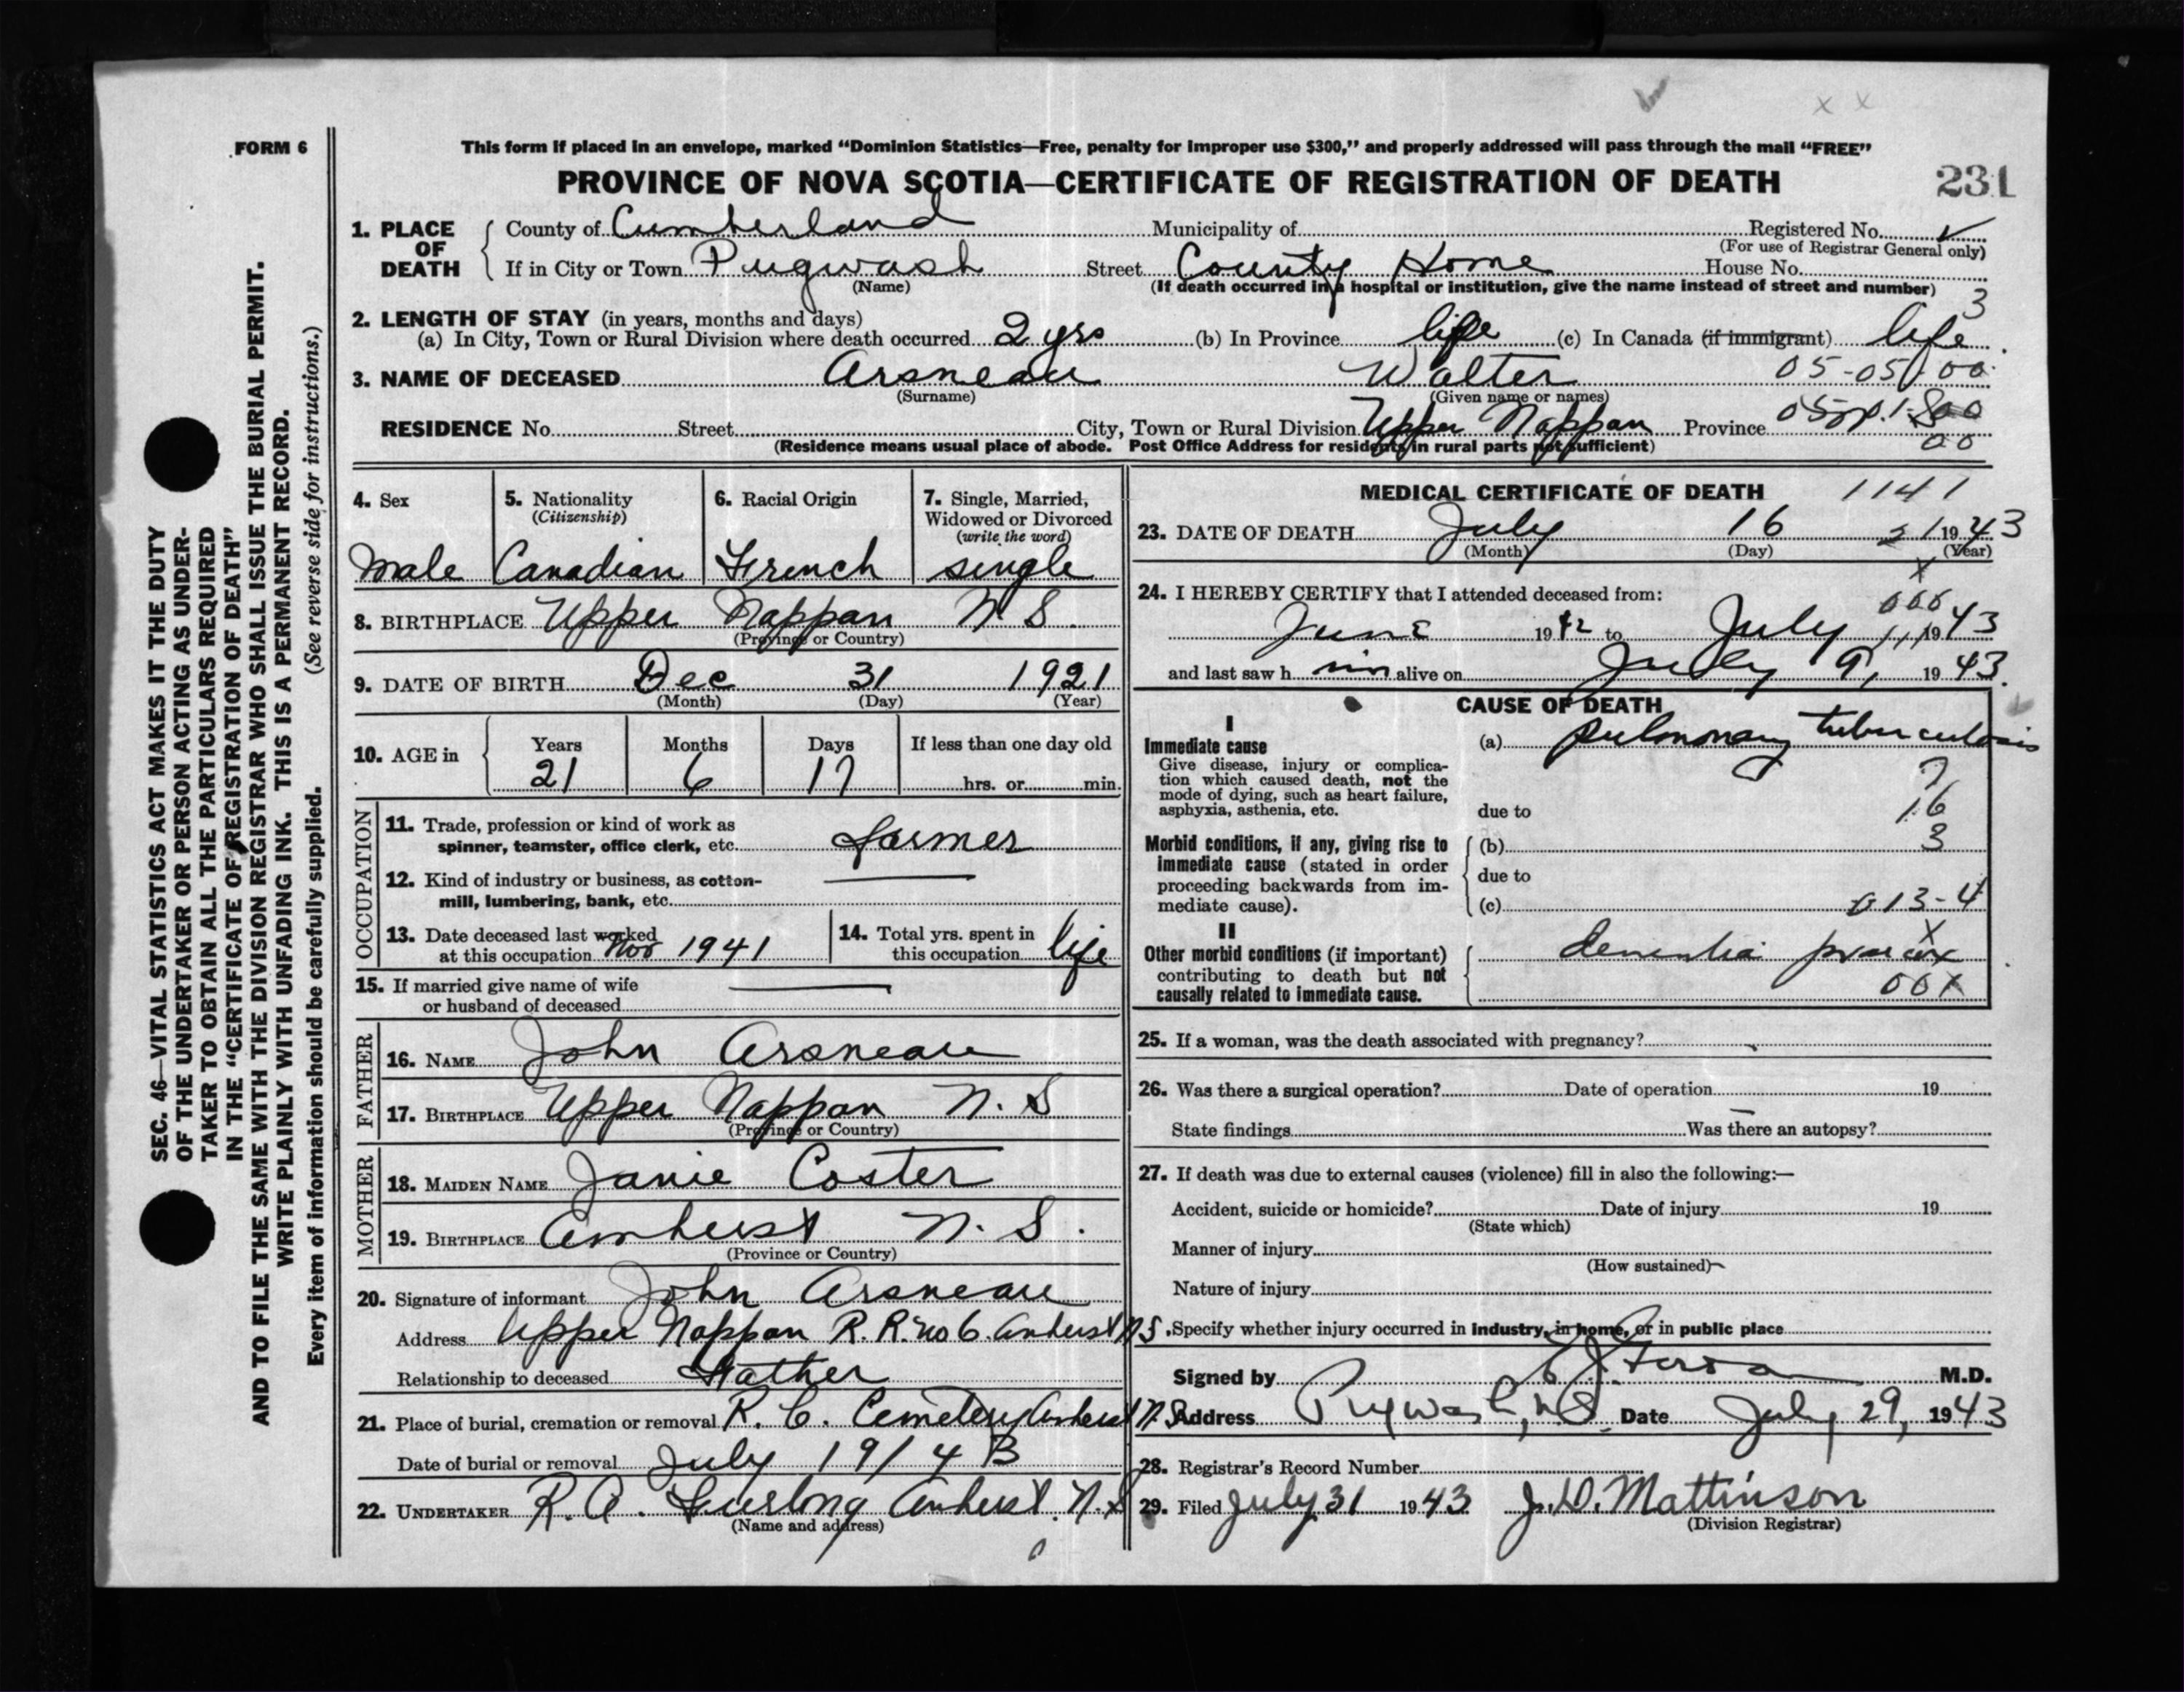 FORM 6
This form if placed in an envelope, marked "Dominion Statistics—Free, penalty for improper use $300," and properly addressed will pass through the mail "FREE"
PROVINCE OF NOVA SCOTIA—CERTIFICATE OF REGISTRATION OF DEATH
231
1. PLACE OF DEATH
County of Cumberland Municipality of Registered No.
(For use of Registrar General only)
If in City or Town Pugwash Street County Home House No.
(Name) (If death occurred in a hospital or institution, give the name instead of street and number)
3
2. LENGTH OF STAY (in years, months and days)
(a) In City, Town or Rural Division where death occurred 2 yrs (b) In Province life (c) In Canada (if immigrant) life
3. NAME OF DECEASED Arsneau Walter 05-05/00
(Surname) (Given name or names)
RESIDENCE No. Street City, Town or Rural Division Upper Nappan Province
(Residence means usual place of abode. Post Office Address for residents in rural parts not sufficient) 00
SEC. 46—VITAL STATISTICS ACT MAKES IT THE DUTY
OF THE UNDERTAKER OR PERSON ACTING AS UNDER-
TAKER TO OBTAIN ALL THE PARTICULARS REQUIRED
IN THE "CERTIFICATE OF REGISTRATION OF DEATH"
AND TO FILE THE SAME WITH THE DIVISION REGISTRAR WHO SHALL ISSUE THE BURIAL PERMIT.
WRITE PLAINLY WITH UNFADING INK. THIS IS A PERMANENT RECORD.
Every item of information should be carefully supplied. (See reverse side for instructions.)
4. Sex
Male
5. Nationality
(Citizenship)
Canadian
6. Racial Origin
French
7. Single, Married,
Widowed or Divorced
(write the word)
single
8. BIRTHPLACE Upper Nappan N S.
(Province or Country)
9. DATE OF BIRTH Dec 31 1921
(Month) (Day) (Year)
10. AGE in
Years Months Days If less than one day old
21 6 17 hrs. or min.
OCCUPATION
11. Trade, profession or kind of work as
spinner, teamster, office clerk, etc. farmer
12. Kind of industry or business, as cotton-
mill, lumbering, bank, etc.
13. Date deceased last worked
at this occupation Nov 1941
14. Total yrs. spent in
this occupation life
15. If married give name of wife
or husband of deceased
FATHER
16. NAME John Arsneau
17. BIRTHPLACE Upper Nappan N. S
(Province or Country)
MOTHER
18. MAIDEN NAME Janie Coster
19. BIRTHPLACE Amherst N. S.
(Province or Country)
20. Signature of informant John Arsneau
Address Upper Nappan R. R. No 6. Amherst N S.
Relationship to deceased Father
21. Place of burial, cremation or removal R. C. Cemetery Amherst N. S
Date of burial or removal July 19/43
22. UNDERTAKER R. A. Furlong Amherst. N. S
(Name and address)
MEDICAL CERTIFICATE OF DEATH 1141
23. DATE OF DEATH July 16 1943
(Month) (Day) (Year)
24. I HEREBY CERTIFY that I attended deceased from:
June 1942 to July 1943
and last saw h im alive on July 9, 1943.
CAUSE OF DEATH
I
Immediate cause
Give disease, injury or complica-
tion which caused death, not the
mode of dying, such as heart failure,
asphyxia, asthenia, etc.
(a) pulmonary tuberculosis
7
16
due to
Morbid conditions, if any, giving rise to
immediate cause (stated in order
proceeding backwards from im-
mediate cause).
(b) 3
due to
(c) 013-4
II
Other morbid conditions (if important)
contributing to death but not
causally related to immediate cause.
dementia praecox
00X
25. If a woman, was the death associated with pregnancy?
26. Was there a surgical operation? Date of operation 19
State findings Was there an autopsy?
27. If death was due to external causes (violence) fill in also the following:—
Accident, suicide or homicide? Date of injury 19
(State which)
Manner of injury
(How sustained)
Nature of injury
Specify whether injury occurred in industry, in home, or in public place
Signed by M.D.
Address Pugwash, N.S. Date July 29, 1943
28. Registrar's Record Number
29. Filed July 31 1943 J. D. Mattinson
(Division Registrar)